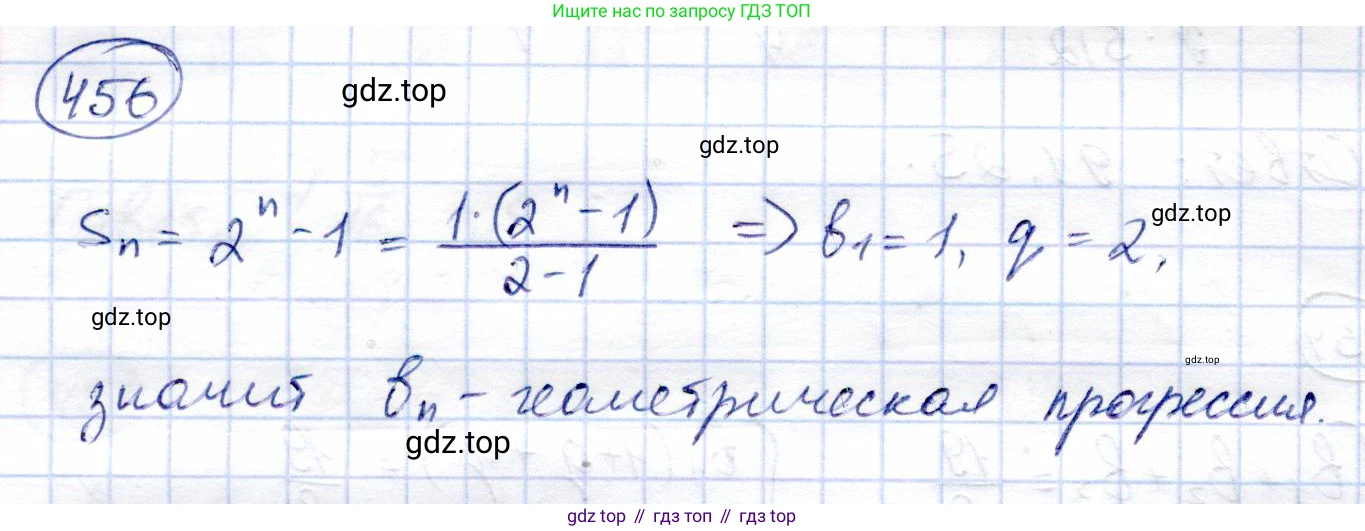 Ищите нас по запросу ГДЗ ТОП
456
gdz.top
gdz.top
Sn = 2^n - 1 = 1·(2^n - 1) / 2 - 1 => b1 = 1, q = 2,
gdz.top
gdz.top
gdz.top
значит bn - геометрическая прогрессия.
gdz.top
gdz top // гдз топ // гдз top